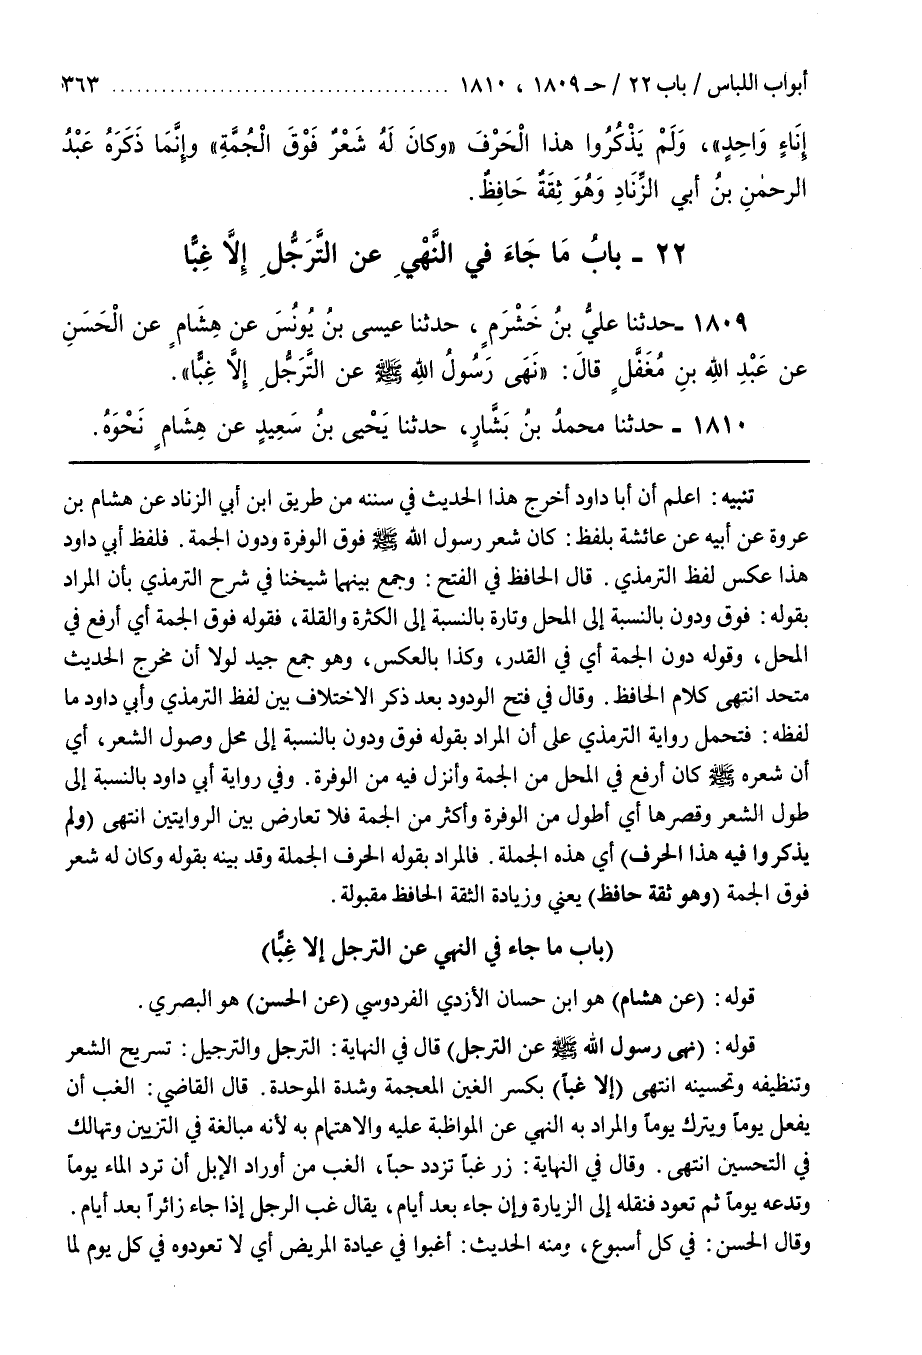 أبواب اللباس / باب ٢٢ / حـ ١٨٠٩ ، ١٨١٠ ........................................ ٣٦٣
إِنَاءٍ وَاحِدٍ»، وَلَمْ يَذْكُرُوا هذا الْحَرْفَ «وكانَ لَهُ شَعْرٌ فَوْقَ الْجُمَّةِ» وإنَّمَا ذَكَرَهُ عَبْدُ
الرحمٰنِ بنُ أبي الزِّنَادِ وَهُوَ ثِقَةٌ حَافِظٌ.
٢٢ ـ بابُ مَا جَاءَ في النَّهْيِ عن التَّرَجُّلِ إِلَّا غِبًّا
١٨٠٩ ـحدثنا عليُّ بنُ خَشْرَمٍ، حدثنا عيسى بنُ يُونُسَ عن هِشَامٍ عن الْحَسَنِ
عن عَبْدِ اللهِ بنِ مُغَفَّلٍ قالَ: «نَهَى رَسُولُ اللهِ ﷺ عن التَّرَجُّلِ إلَّا غِبًّا».
١٨١٠ ـ حدثنا محمدُ بنُ بَشَّارٍ، حدثنا يَحْيى بنُ سَعِيدٍ عن هِشَامٍ نَحْوَهُ.
تنبيه: اعلم أن أبا داود أخرج هذا الحديث في سننه من طريق ابن أبي الزناد عن هشام بن
عروة عن أبيه عن عائشة بلفظ: كان شعر رسول الله ﷺ فوق الوفرة ودون الجمة. فلفظ أبي داود
هذا عكس لفظ الترمذي. قال الحافظ في الفتح: وجمع بينهما شيخنا في شرح الترمذي بأن المراد
بقوله: فوق ودون بالنسبة إلى المحل وتارة بالنسبة إلى الكثرة والقلة، فقوله فوق الجمة أي أرفع في
المحل، وقوله دون الجمة أي في القدر، وكذا بالعكس، وهو جمع جيد لولا أن مخرج الحديث
متحد انتهى كلام الحافظ. وقال في فتح الودود بعد ذكر الاختلاف بين لفظ الترمذي وأبي داود ما
لفظه: فتحمل رواية الترمذي على أن المراد بقوله فوق ودون بالنسبة إلى محل وصول الشعر، أي
أن شعره ﷺ كان أرفع في المحل من الجمة وأنزل فيه من الوفرة. وفي رواية أبي داود بالنسبة إلى
طول الشعر وقصرها أي أطول من الوفرة وأكثر من الجمة فلا تعارض بين الروايتين انتهى (ولم
يذكروا فيه هذا الحرف) أي هذه الجملة. فالمراد بقوله الحرف الجملة وقد بينه بقوله وكان له شعر
فوق الجمة (وهو ثقة حافظ) يعني وزيادة الثقة الحافظ مقبولة.
(باب ما جاء في النهي عن الترجل إلا غِبًّا)
قوله: (عن هشام) هو ابن حسان الأزدي الفردوسي (عن الحسن) هو البصري.
قوله: (نهى رسول الله ﷺ عن الترجل) قال في النهاية: الترجل والترجيل: تسريح الشعر
وتنظيفه وتحسينه انتهى (إلا غباً) بكسر الغين المعجمة وشدة الموحدة. قال القاضي: الغب أن
يفعل يوماً ويترك يوماً والمراد به النهي عن المواظبة عليه والاهتمام به لأنه مبالغة في التزيين وتهالك
في التحسين انتهى. وقال في النهاية: زر غباً تزدد حباً، الغب من أوراد الإبل أن ترد الماء يوماً
وتدعه يوماً ثم تعود فنقله إلى الزيارة وإن جاء بعد أيام، يقال غب الرجل إذا جاء زائراً بعد أيام.
وقال الحسن: في كل أسبوع، ومنه الحديث: أغبوا في عيادة المريض أي لا تعودوه في كل يوم لما